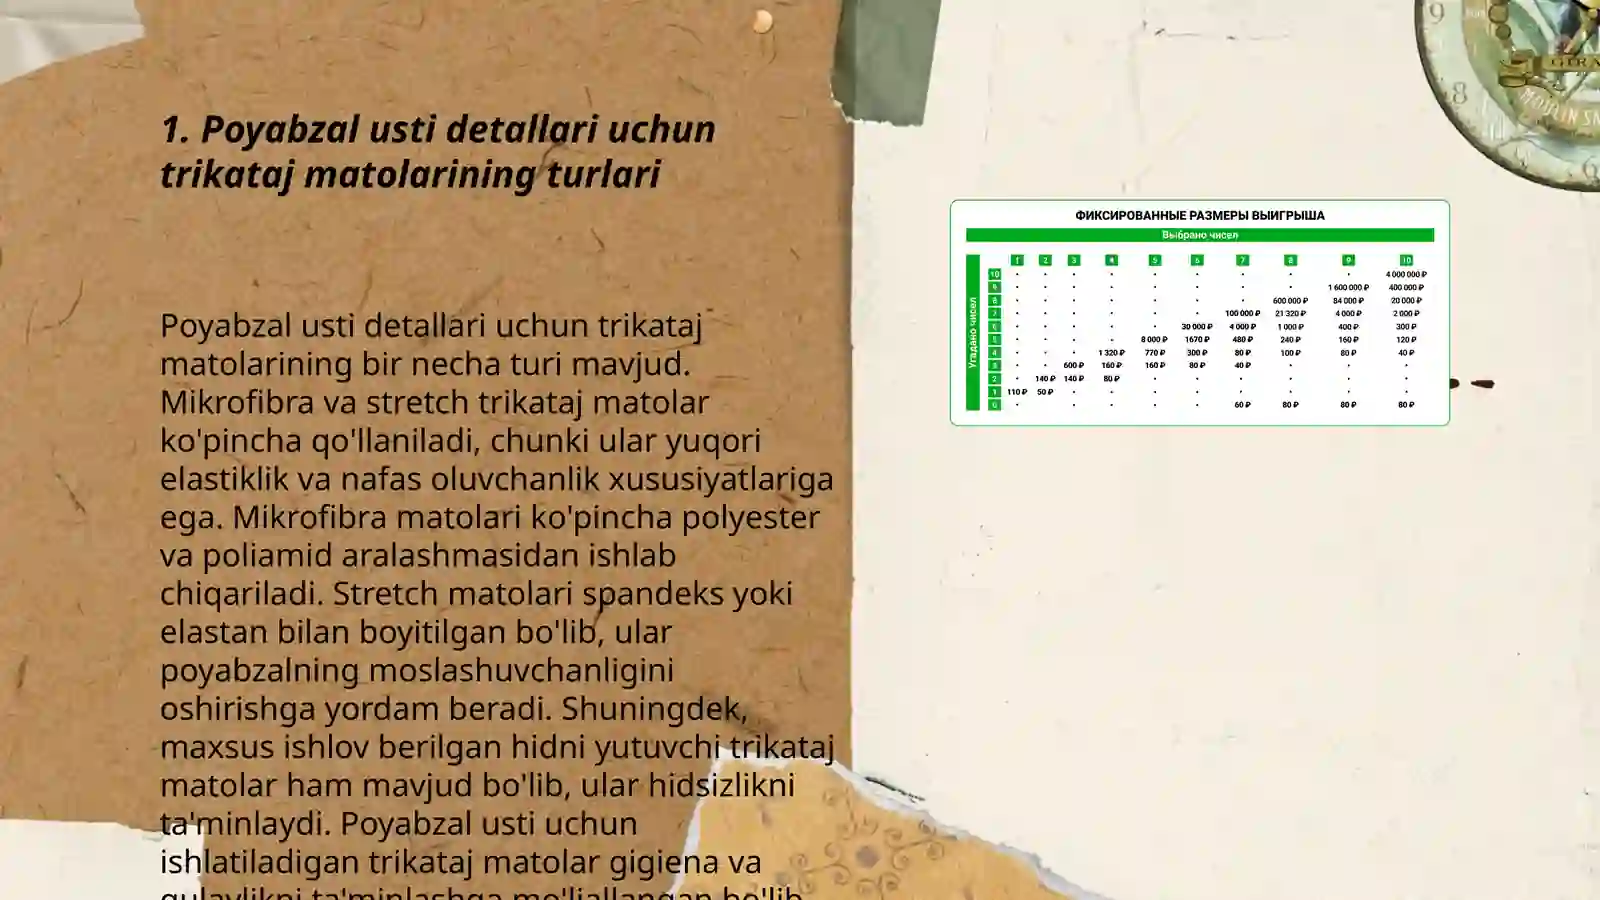 1. Poyabzal usti detallari uchun
trikataj matolarining turlari
Poyabzal usti detallari uchun trikataj
matolarining bir necha turi mavjud.
Mikrofibra va stretch trikataj matolar
ko'pincha qo'llaniladi, chunki ular yuqori
elastiklik va nafas oluvchanlik xususiyatlariga
ega. Mikrofibra matolari ko'pincha polyester
va poliamid aralashmasidan ishlab
chiqariladi. Stretch matolari spandeks yoki
elastan bilan boyitilgan bo'lib, ular
poyabzalning moslashuvchanligini
oshirishga yordam beradi. Shuningdek,
maxsus ishlov berilgan hidni yutuvchi trikataj
matolar ham mavjud bo'lib, ular hidsizlikni
ta'minlaydi. Poyabzal usti uchun
ishlatiladigan trikataj matolar gigiena va
qulaylikni ta'minlashga mo'ljallangan bo'lib,
ФИКСИРОВАННЫЕ РАЗМЕРЫ ВЫИГРЫША
Выбрано чисел
Угадано чисел
1 2 3 4 5 6 7 8 9 10
10 · · · · · · · · · 4 000 000 ₽
9 · · · · · · · · 1 600 000 ₽ 400 000 ₽
8 · · · · · · · 600 000 ₽ 84 000 ₽ 20 000 ₽
7 · · · · · · 100 000 ₽ 21 320 ₽ 4 000 ₽ 2 000 ₽
6 · · · · · 30 000 ₽ 4 000 ₽ 1 000 ₽ 400 ₽ 300 ₽
5 · · · · 8 000 ₽ 1670 ₽ 480 ₽ 240 ₽ 160 ₽ 120 ₽
4 · · · 1 320 ₽ 770 ₽ 300 ₽ 80 ₽ 100 ₽ 80 ₽ 40 ₽
3 · · 600 ₽ 160 ₽ 160 ₽ 80 ₽ 40 ₽ · · ·
2 · 140 ₽ 140 ₽ 80 ₽ · · · · · ·
1 110 ₽ 50 ₽ · · · · · · · ·
0 · · · · · · 60 ₽ 80 ₽ 80 ₽ 80 ₽
9
8
6
MOULIN